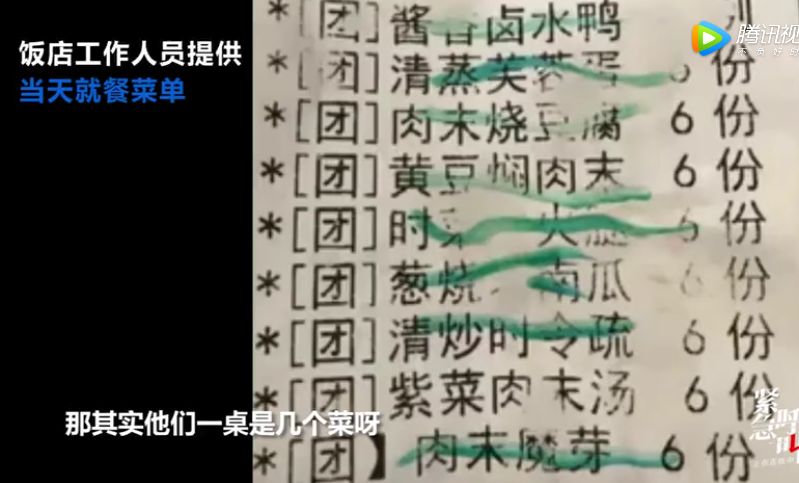 饭店工作人员提供
当天就餐菜单
腾讯视
*[团]酱香卤水鸭
*[团]清蒸芙蓉蛋 6 份
*[团]肉末烧豆腐 6 份
*[团]黄豆焖肉末 6 份
*[团]时 火腿 6 份
*[团]葱烧 南瓜 6 份
*[团]清炒时令疏 6 份
*[团]紫菜肉末汤 6 份
*[团】肉末魔芽 6 份
那其实他们一桌是几个菜呀
紧急时